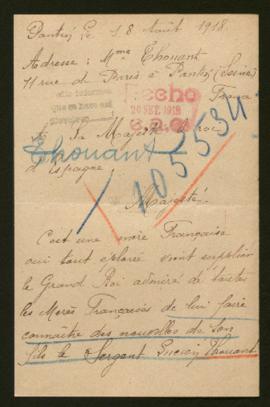 Pantin, le 18 Août 1918.
Adresse : Mme Thouant
11 rue de Paris à Pantin (Seine)
France
Hecho
20 SET. 1918
105534
Sa Majesté le roi
Thouant
d'Espagne
Majesté.
C'est une mère Française
qui tout éplorée vient supplier
le Grand Roi admiré de toutes
les Mères Françaises de lui faire
connaître des nouvelles de son
fils le Sergent Lucien Thouant